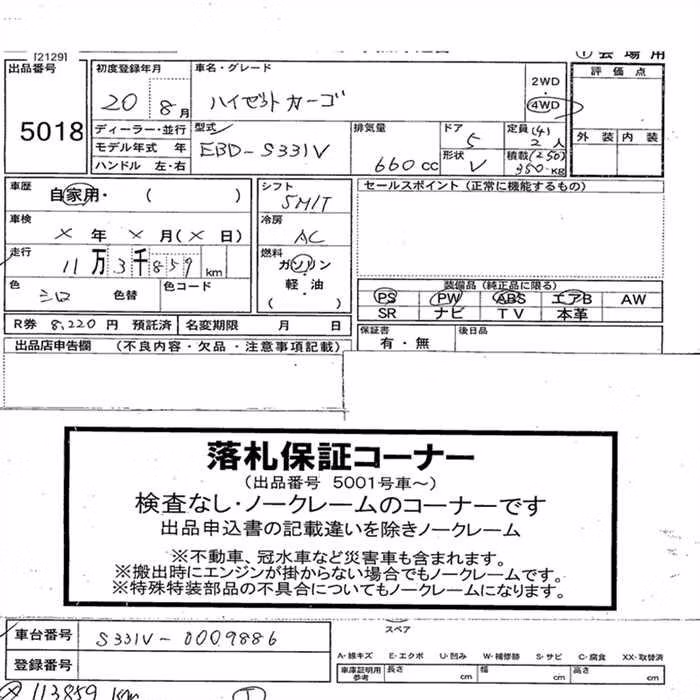 [2129]
出品番号
5018
初度登録年月
20 8月
車名・グレード
ハイゼットカーゴ
2WD
4WD
会場用
評価点
外装 内装
ディーラー・並行
モデル年式 年
ハンドル 左・右
型式
EBD-S331V
排気量
660cc
ドア
5
形状
V
定員(4)
2人
積載(250)
350kg
車歴
自家用・( )
車検
× 年 × 月(× 日)
走行
11万3千859km
色
シロ 色替
色コード
シフト
5MIT
冷房
AC
燃料
ガソリン
軽・油
( ・ )
セールスポイント(正常に機能するもの)
装備品(純正品に限る)
PS PW ABS エアB AW
SR ナビ TV 本革
R券 8,220円 預託済 名変期限 月 日
保証書
有・無
後日品
出品店申告欄 (不良内容・欠品・注意事項記載)
落札保証コーナー
(出品番号 5001号車~)
検査なし・ノークレームのコーナーです
出品申込書の記載違いを除きノークレーム
※不動車、冠水車など災害車も含まれます。
※搬出時にエンジンが掛からない場合でもノークレームです。
※特殊特装部品の不具合についてもノークレームになります。
車台番号 S331V-0009886
登録番号
スペア
A-線キズ E-エクボ U-凹み W-補修跡 S-サビ C-腐食 XX-取替済
車庫証明用
参考
長さ cm 幅 cm 高さ cm
113859km